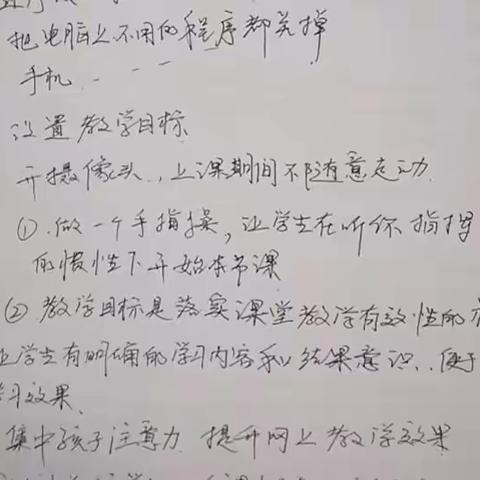 把电脑上不用的程序都关掉
手机
设置教学目标
开摄像头,上课期间不随意走动
①.做一个手指操,让学生在听你指挥
的惯性下开始本节课
②.教学目标是落实课堂教学有效性的
让学生有明确的学习内容和结果意识..便于
学习效果.
集中孩子注意力 提升网上教学效果